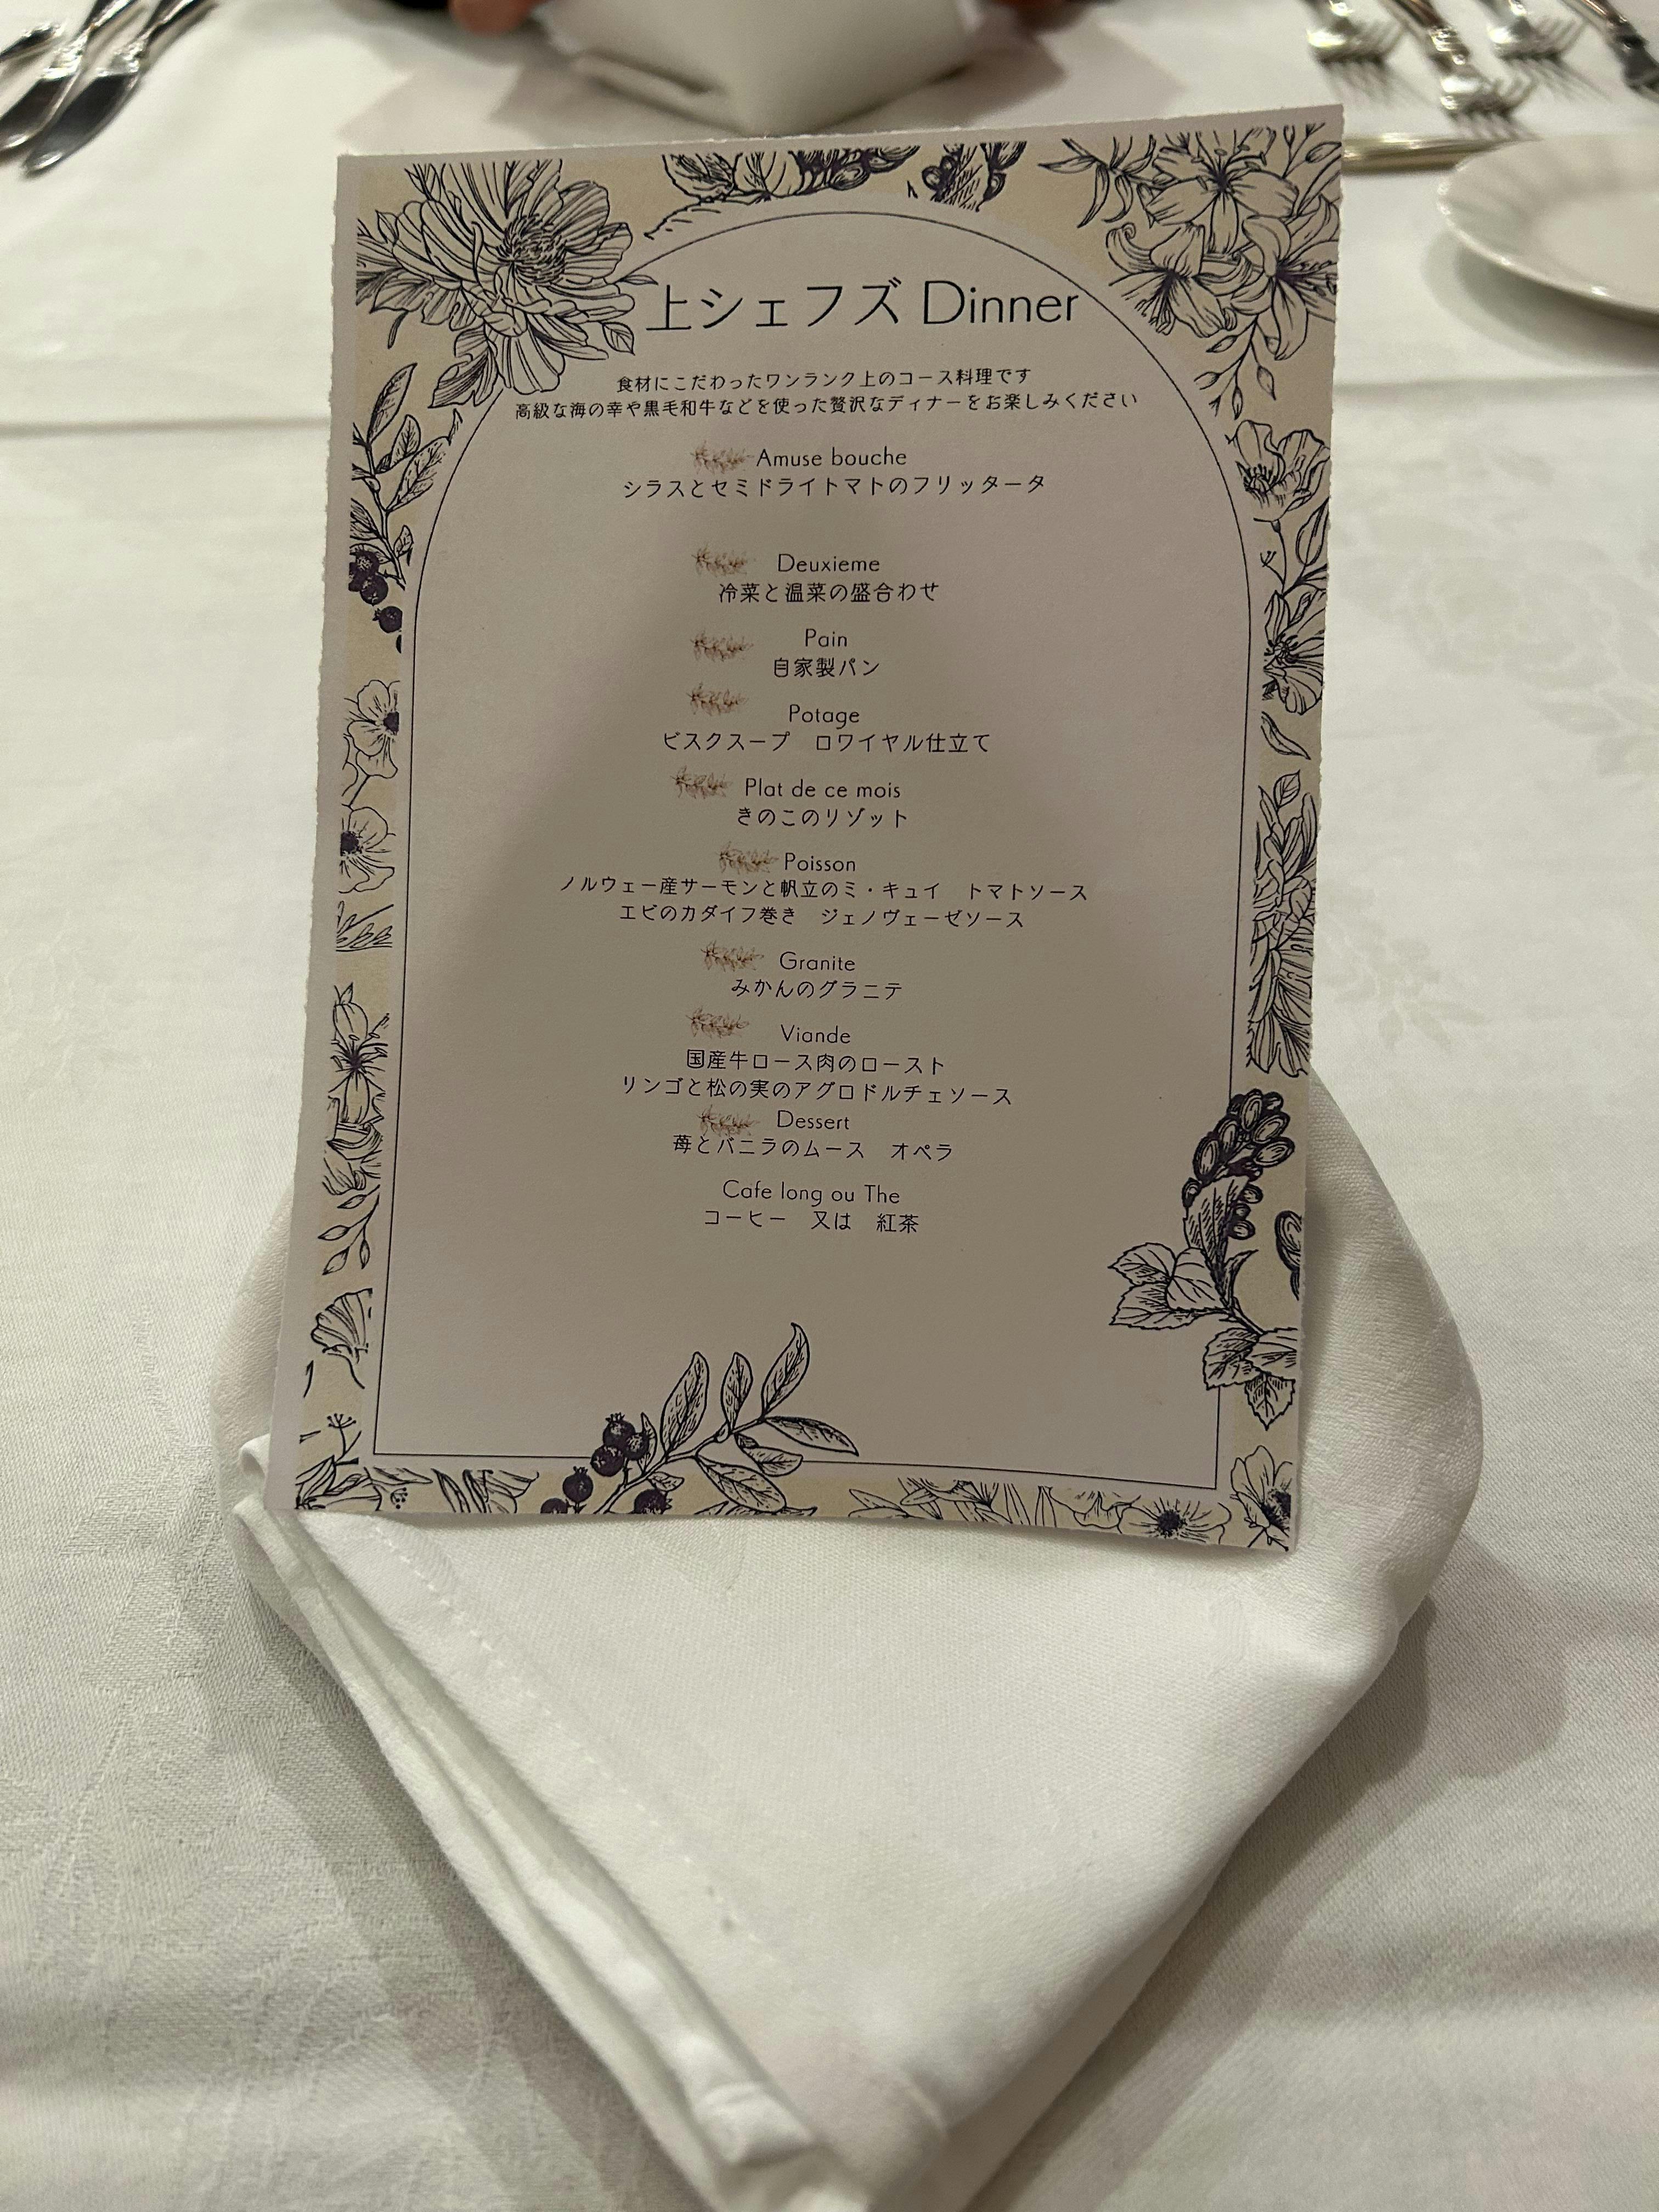 上シェフズ Dinner
食材にこだわったワンランク上のコース料理です
高級な海の幸や黒毛和牛などを使った贅沢なディナーをお楽しみください
Amuse bouche
シラスとセミドライトマトのフリッタータ
Deuxieme
冷菜と温菜の盛合わせ
Pain
自家製パン
Potage
ビスクスープ　ロワイヤル仕立て
Plat de ce mois
きのこのリゾット
Poisson
ノルウェー産サーモンと帆立のミ・キュイ　トマトソース
エビのカダイフ巻き　ジェノヴェーゼソース
Granite
みかんのグラニテ
Viande
国産牛ロース肉のロースト
リンゴと松の実のアグロドルチェソース
Dessert
苺とバニラのムース　オペラ
Cafe long ou The
コーヒー　又は　紅茶